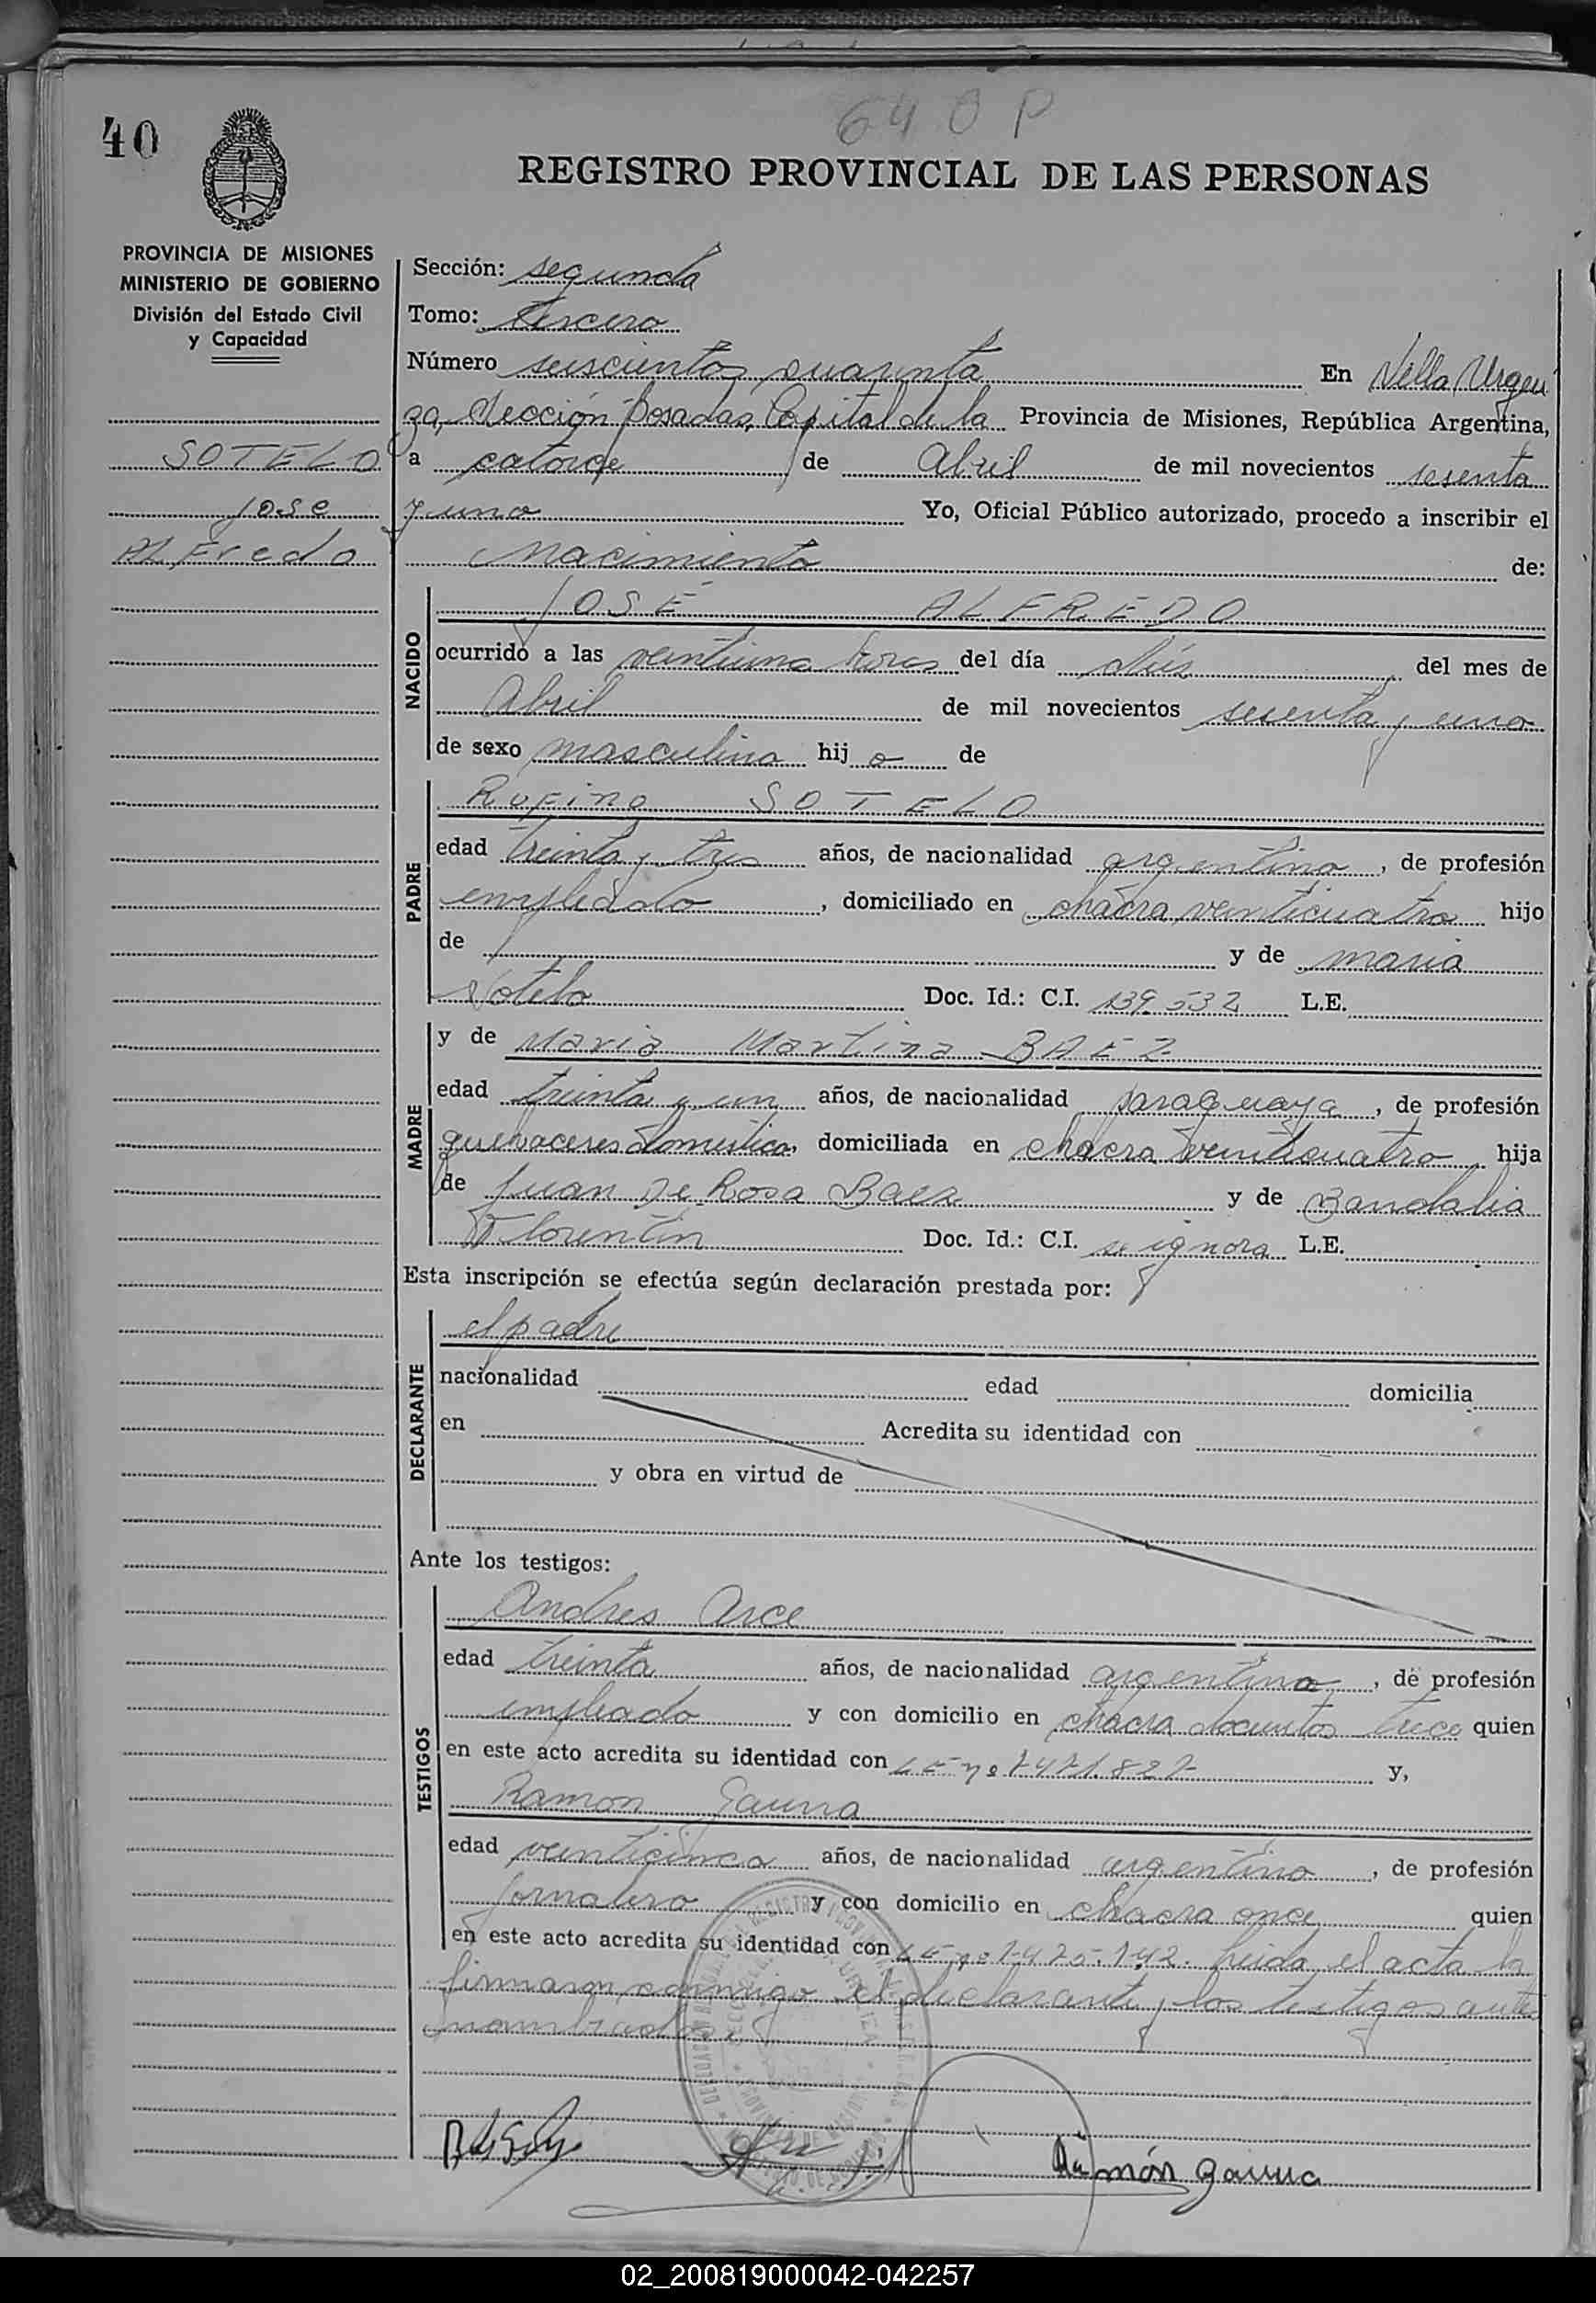 640 P
40
REGISTRO PROVINCIAL DE LAS PERSONAS
PROVINCIA DE MISIONES
MINISTERIO DE GOBIERNO
División del Estado Civil
y Capacidad
SOTELO
Jose
ALFredo
Sección: segunda
Tomo: tercero
Número seiscientos cuarenta En Villa Urqui
za, Sección Posadas, Capital de la Provincia de Misiones, República Argentina,
a catorce de Abril de mil novecientos sesenta
y uno Yo, Oficial Público autorizado, procedo a inscribir el
Nacimiento de:
NACIDO
JOSÉ ALFREDO
ocurrido a las veintiuna horas del día diés del mes de
Abril de mil novecientos sesenta y uno
de sexo masculino hij o de
PADRE
Rufino SOTELO
edad treinta y tres años, de nacionalidad argentino, de profesión
empleado, domiciliado en chacra veinticuatro hijo
de y de maria
Sotelo Doc. Id.: C.I. 139.532 L.E.
MADRE
y de Maria Martina BAEZ
edad treinta y un años, de nacionalidad paraguaya, de profesión
quehaceres domesticos, domiciliada en chacra veinticuatro hija
de Juan De Rosa Baez y de Bandalia
Florentin Doc. Id.: C.I. se ignora L.E.
Esta inscripción se efectúa según declaración prestada por:
DECLARANTE
el padre
nacionalidad edad domicilia
en Acredita su identidad con
y obra en virtud de
Ante los testigos:
TESTIGOS
Andres Arce
edad treinta años, de nacionalidad argentino, de profesión
empleado y con domicilio en chacra docientos trece quien
en este acto acredita su identidad con LE nº y,
Ramon Gauna
edad veinticinco años, de nacionalidad argentino, de profesión
jornalero y con domicilio en chacra once quien
en este acto acredita su identidad con LE nº 7.425.142. Leida el acta la
firmaron conmigo el declarante y los testigos antes
nombrados.
Ramón Gauna
02_200819000042-042257